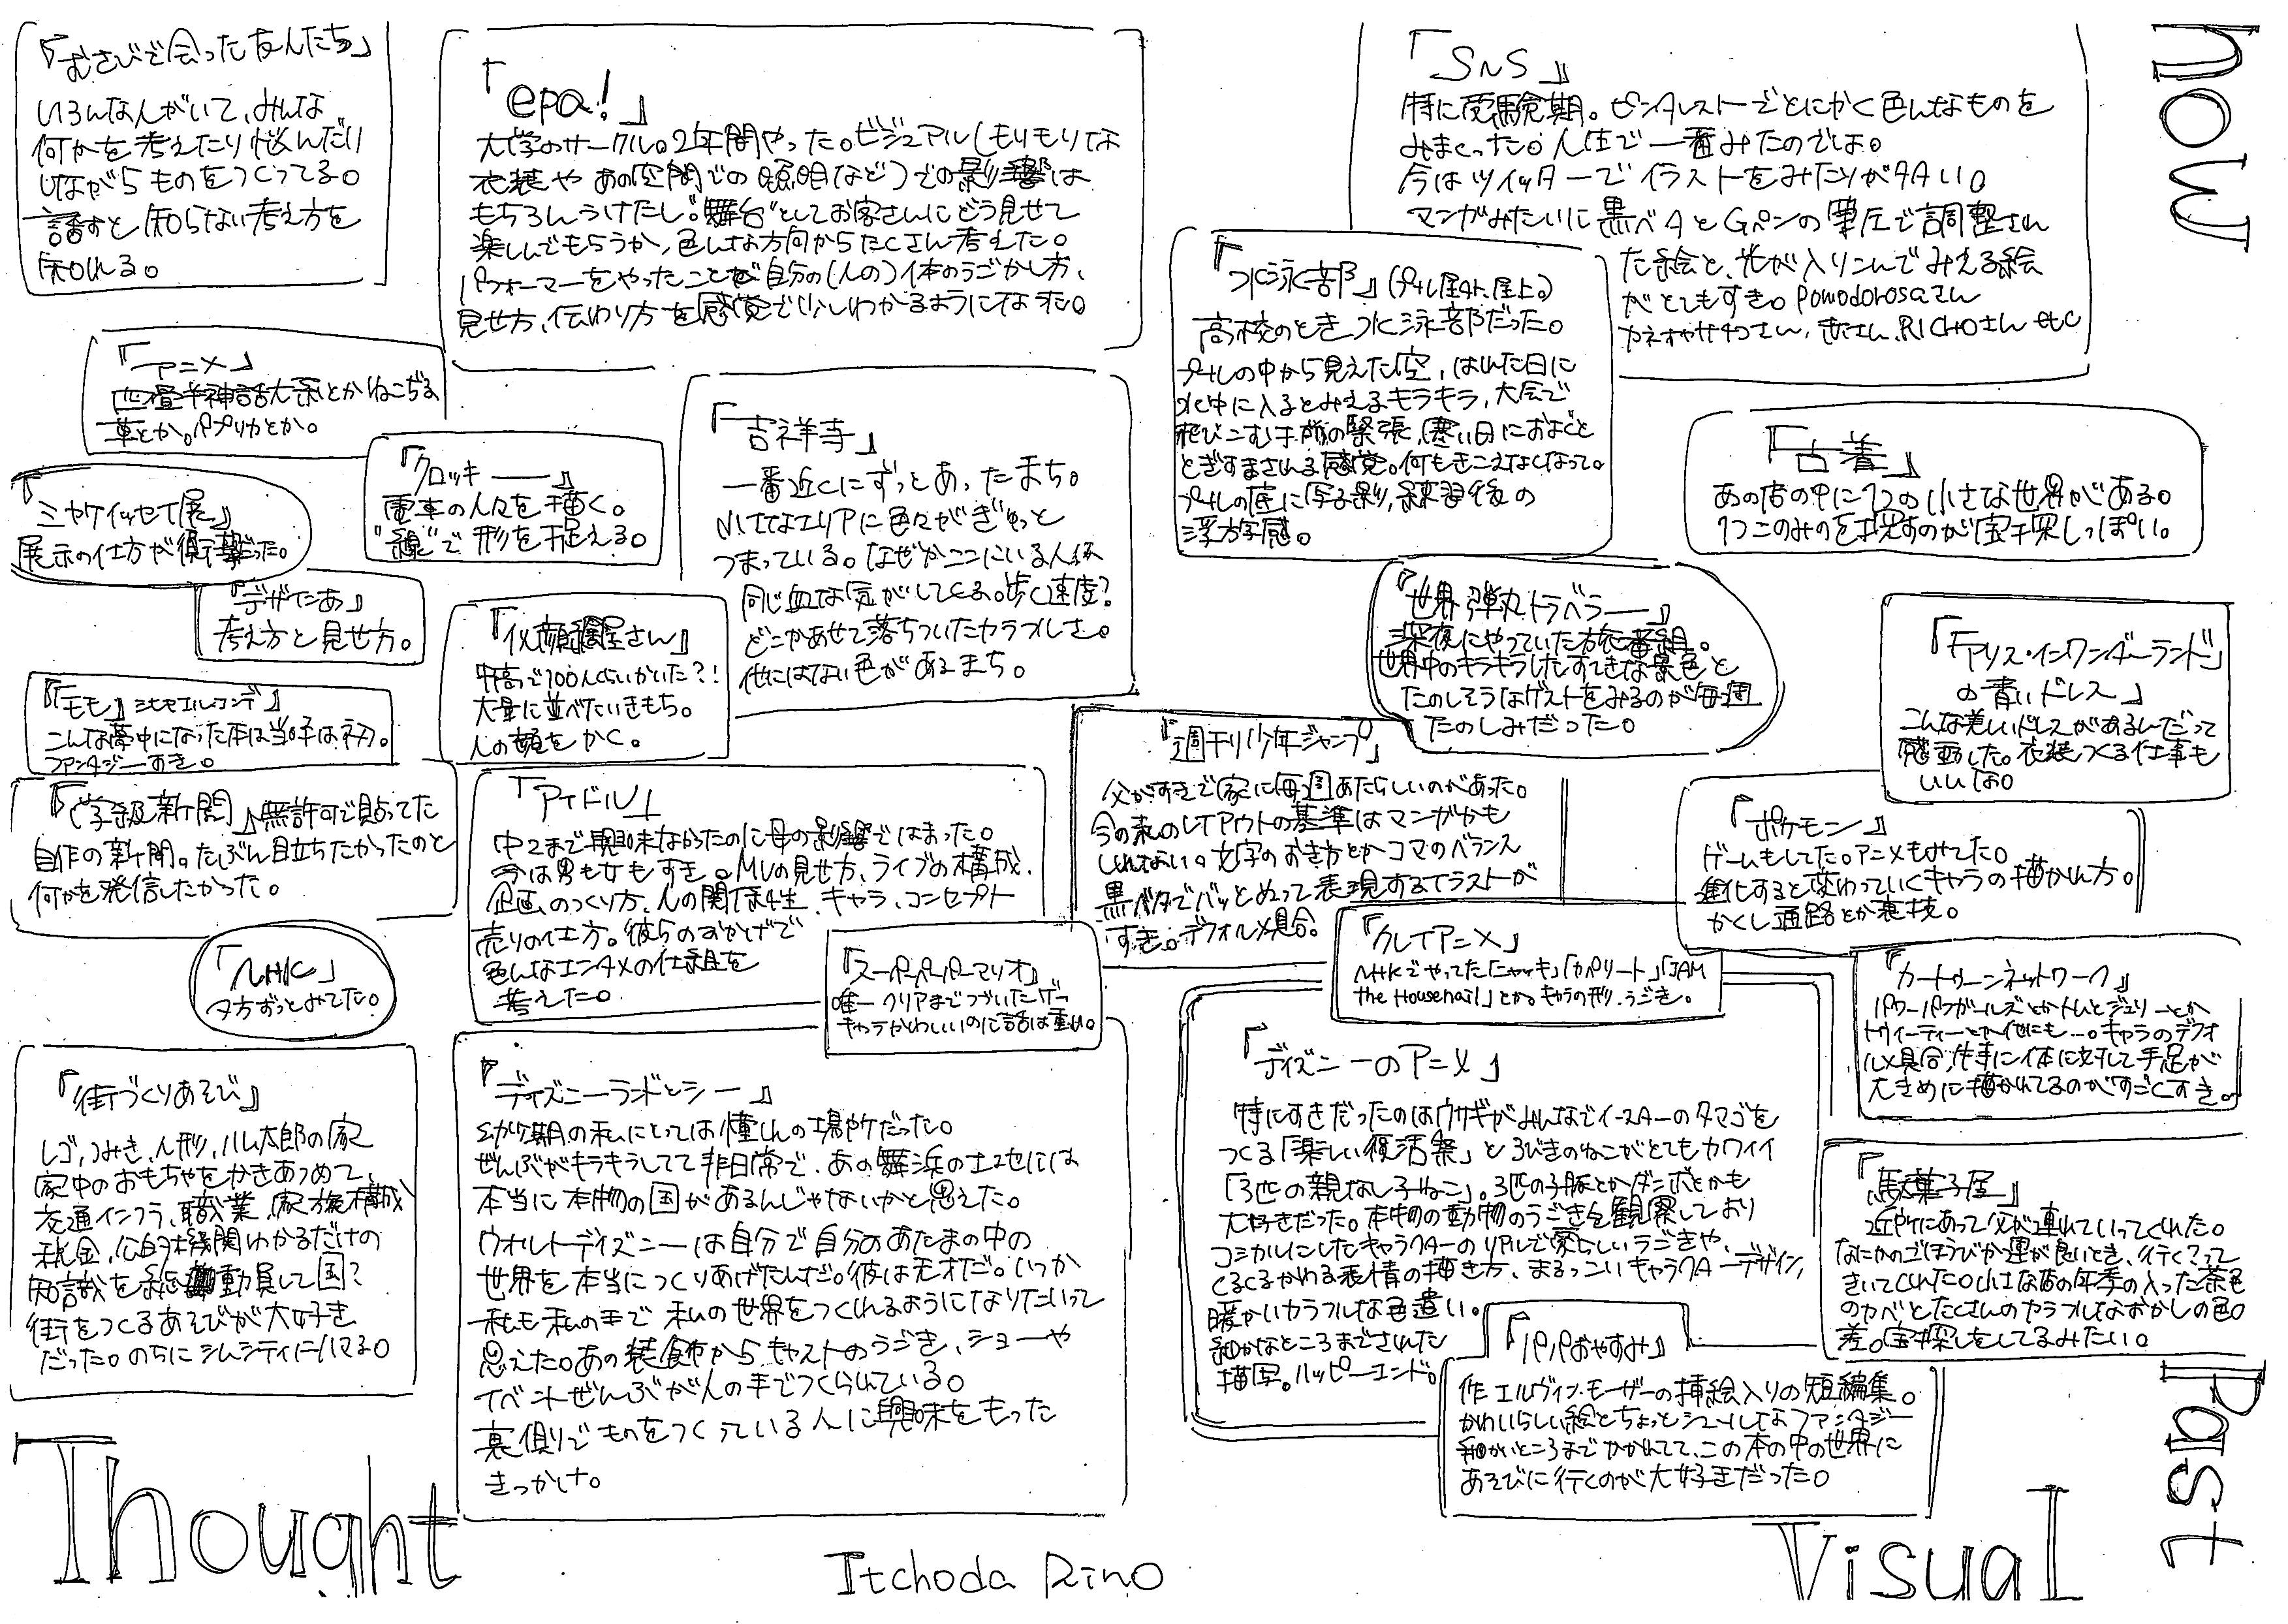 『むさびで会った友人たち』
いろんな人がいて、みんな
何かを考えたり悩んだり
しながらものをつくってる。
話すと知らない考え方を
知れる。
「epa!」
大学のサークル。2年間やった。ビジュアル(もりもりな
衣装やあの空間での照明など)での影響は
もちろんうけたし、"舞台"としてお客さんにどう見せて
楽しんでもらうか、色んな方向からたくさん考えた。
パフォーマーをやったことで自分の(人の)体のうごかし方、
見せ方、伝わり方を感覚で少しわかるようになった。
「SNS」
特に受験期。ピンタレストでとにかく色んなものを
みまくった。人生で一番みたのでは。
今はツイッターでイラストをみたりが多い。
マンガみたいに黒ベタとGペンの筆圧で調整され
た絵と、光が入りこんでみえる絵
がとてもすき。Pomodorosaさん
カネオヤサチコさん、 RICHOさん etc
now
『水泳部』(プール屋外、屋上。)
高校のとき水泳部だった。
プールの中から見えた空、はれた日に
水中に入るとみえるキラキラ、大会で
飛びこむ手前の緊張、寒い日におよぐと
とぎすまされる感覚。何もきこえなくなって。
プールの底に写る影、練習後の
浮力感。
『アニメ』
四畳半神話大系とかねこぢる
草とか。パプリカとか。
『クロッキー』
電車の人々を描く。
"線"で形を捉える。
「吉祥寺」
一番近くにずっとあったまち。
小さなエリアに色々がぎゅっと
つまっている。なぜかここにいる人は
同じ血な気がしてくる。歩く速度?
どこかあせて落ちついたカラフルさ。
他にはない色があるまち。
『古着』
あの店の中に1つの小さな世界がある。
1つこのみのを探すのが宝探しっぽい。
『ミヤケイッセイ展』
展示の仕方が衝撃だった。
『デザインあ』
考え方と見せ方。
『似顔絵屋さん』
中高で100人くらいかいた?!
大量に並べたいきもち。
人の顔をかく。
『世界弾丸トラベラー』
深夜にやっていた旅番組。
世界中のキラキラしたすてきな景色と
たのしそうなゲストをみるのが毎週
たのしみだった。
『「アリス・イン・ワンダーランド」
の青いドレス』
こんな美しいドレスがあるんだって
感動した。衣装つくる仕事も
いいな。
『「モモ」ミヒャエル・エンデ』
こんな夢中になった本は当時は初。
ファンタジーすき。
『学級新聞』無許可で貼ってた
自作の新聞。たぶん目立ちたかったのと
何かを発信したかった。
「アイドル」
中2まで興味なかったのに母の影響ではまった。
今は男も女もすき。MVの見せ方、ライブの構成、
企画のつくり方、人の関係性、キャラ、コンセプト
売りの仕方。彼らのおかげで
色んなエンタメの仕組を
考えた。
『週刊少年ジャンプ』
父がすきで家に毎週あたらしいのがあった。
今の私のレイアウトの基準はマンガかも
しれない。文字のおき方とかコマのバランス
黒ベタでバッとぬって表現するイラストが
すき。デフォルメ具合。
『ポケモン』
ゲームもしてた。アニメもみてた。
進化すると変わっていくキャラの描かれ方。
かくし通路とか裏技。
「NHK」
夕方ずっとみてた。
『スーパーペーパーマリオ』
唯一クリアまでつづいたゲー
キャラかわいいのに話は重い。
『クレイアニメ』
NHKでやってた「ニャッキ」「カペリート」「JAM
the Housnail」とか。キャラの形、うごき。
『カートゥーンネットワーク』
パワーパフガールズとかトムとジェリーとか
トゥイーティーとか他にも…。キャラのデフォ
ルメ具合、特に体に対して手足が
大きめに描かれてるのがすごくすき。
『街づくりあそび』
レゴ、つみき、人形、ハム太郎の家
家中のおもちゃをかきあつめて、
交通インフラ、職業、家族構成
税金、公的機関わかるだけの
知識を総動員して国?
街をつくるあそびが大好き
だった。のちにシムシティにハマる。
『ディズニーランドとシー』
幼少期の私にとっては憧れの場所だった。
ぜんぶがキラキラしてて非日常で、あの舞浜の土地には
本当に本物の国があるんじゃないかと思えた。
ウォルト・ディズニーは自分で自分のあたまの中の
世界を本当につくりあげたんだ。彼は天才だ。いつか
私も私の手で私の世界をつくれるようになりたいって
思えた。あの装飾からキャストのうごき、ショーや
イベントぜんぶが人の手でつくられている。
裏側でものをつくっている人に興味をもった
きっかけ。
『ディズニーのアニメ』
特にすきだったのはウサギがみんなでイースターのタマゴを
つくる「楽しい復活祭」と3びきのねこがとてもカワイイ
「3匹の親なし子ねこ」。3匹の子豚とかダンボとかも
大好きだった。本物の動物のうごきを観察しており
コミカルにしたキャラクターのリアルで愛らしいうごきや、
くるくるかわる表情の描き方、まるっこいキャラクターデザイン、
暖かいカラフルな色遣い。
細かなところまでされた
描写。ハッピーエンド。
『駄菓子屋』
近所にあって父が連れていってくれた。
なにかのごほうびか運が良いとき、行く?って
きいてくれた。小さな店の年季の入った茶色
のカベとたくさんのカラフルなおかしの色の
差。宝探しをしてるみたい。
『パパおやすみ』
作エルヴィン・モーザーの挿絵入りの短編集。
かわいらしい絵とちょっとシュールなファンタジー
細かいところまでかかれてて、この本の中の世界に
あそびに行くのが大好きだった。
Past
Thought
Itchoda Rino
Visual